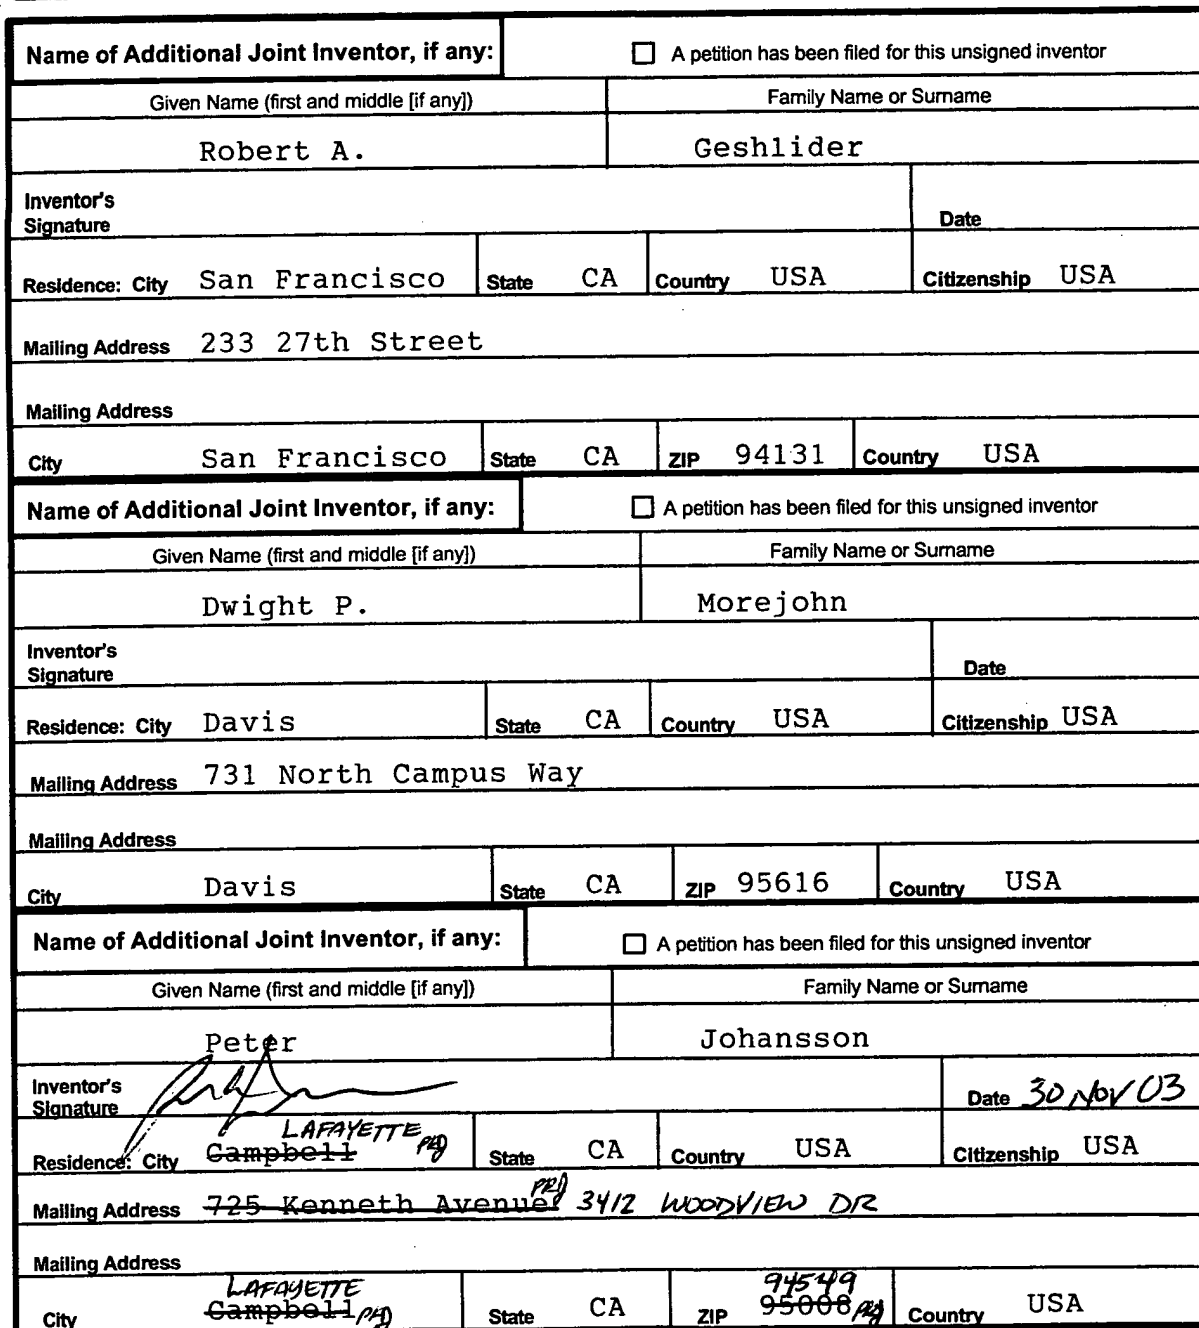 Name of Additional Joint Inventor, if any: A petition has been filed for this unsigned inventor
Given Name (first and middle [if any]) Family Name or Surname
Robert A. Geshlider
Inventor's
Signature Date
Residence: City San Francisco State CA Country USA Citizenship USA
Mailing Address 233 27th Street
Mailing Address
City San Francisco State CA ZIP 94131 Country USA
Name of Additional Joint Inventor, if any: A petition has been filed for this unsigned inventor
Given Name (first and middle [if any]) Family Name or Surname
Dwight P. Morejohn
Inventor's
Signature Date
Residence: City Davis State CA Country USA Citizenship USA
Mailing Address 731 North Campus Way
Mailing Address
City Davis State CA ZIP 95616 Country USA
Name of Additional Joint Inventor, if any: A petition has been filed for this unsigned inventor
Given Name (first and middle [if any]) Family Name or Surname
Peter Johansson
Inventor's
Signature Date 30 NOV 03
LAFAYETTE
Residence: City Campbell State CA Country USA Citizenship USA
Mailing Address 725 Kenneth Avenue 3412 WOODVIEW DR
Mailing Address
LAFAYETTE 94549
City Campbell State CA ZIP 95008 Country USA